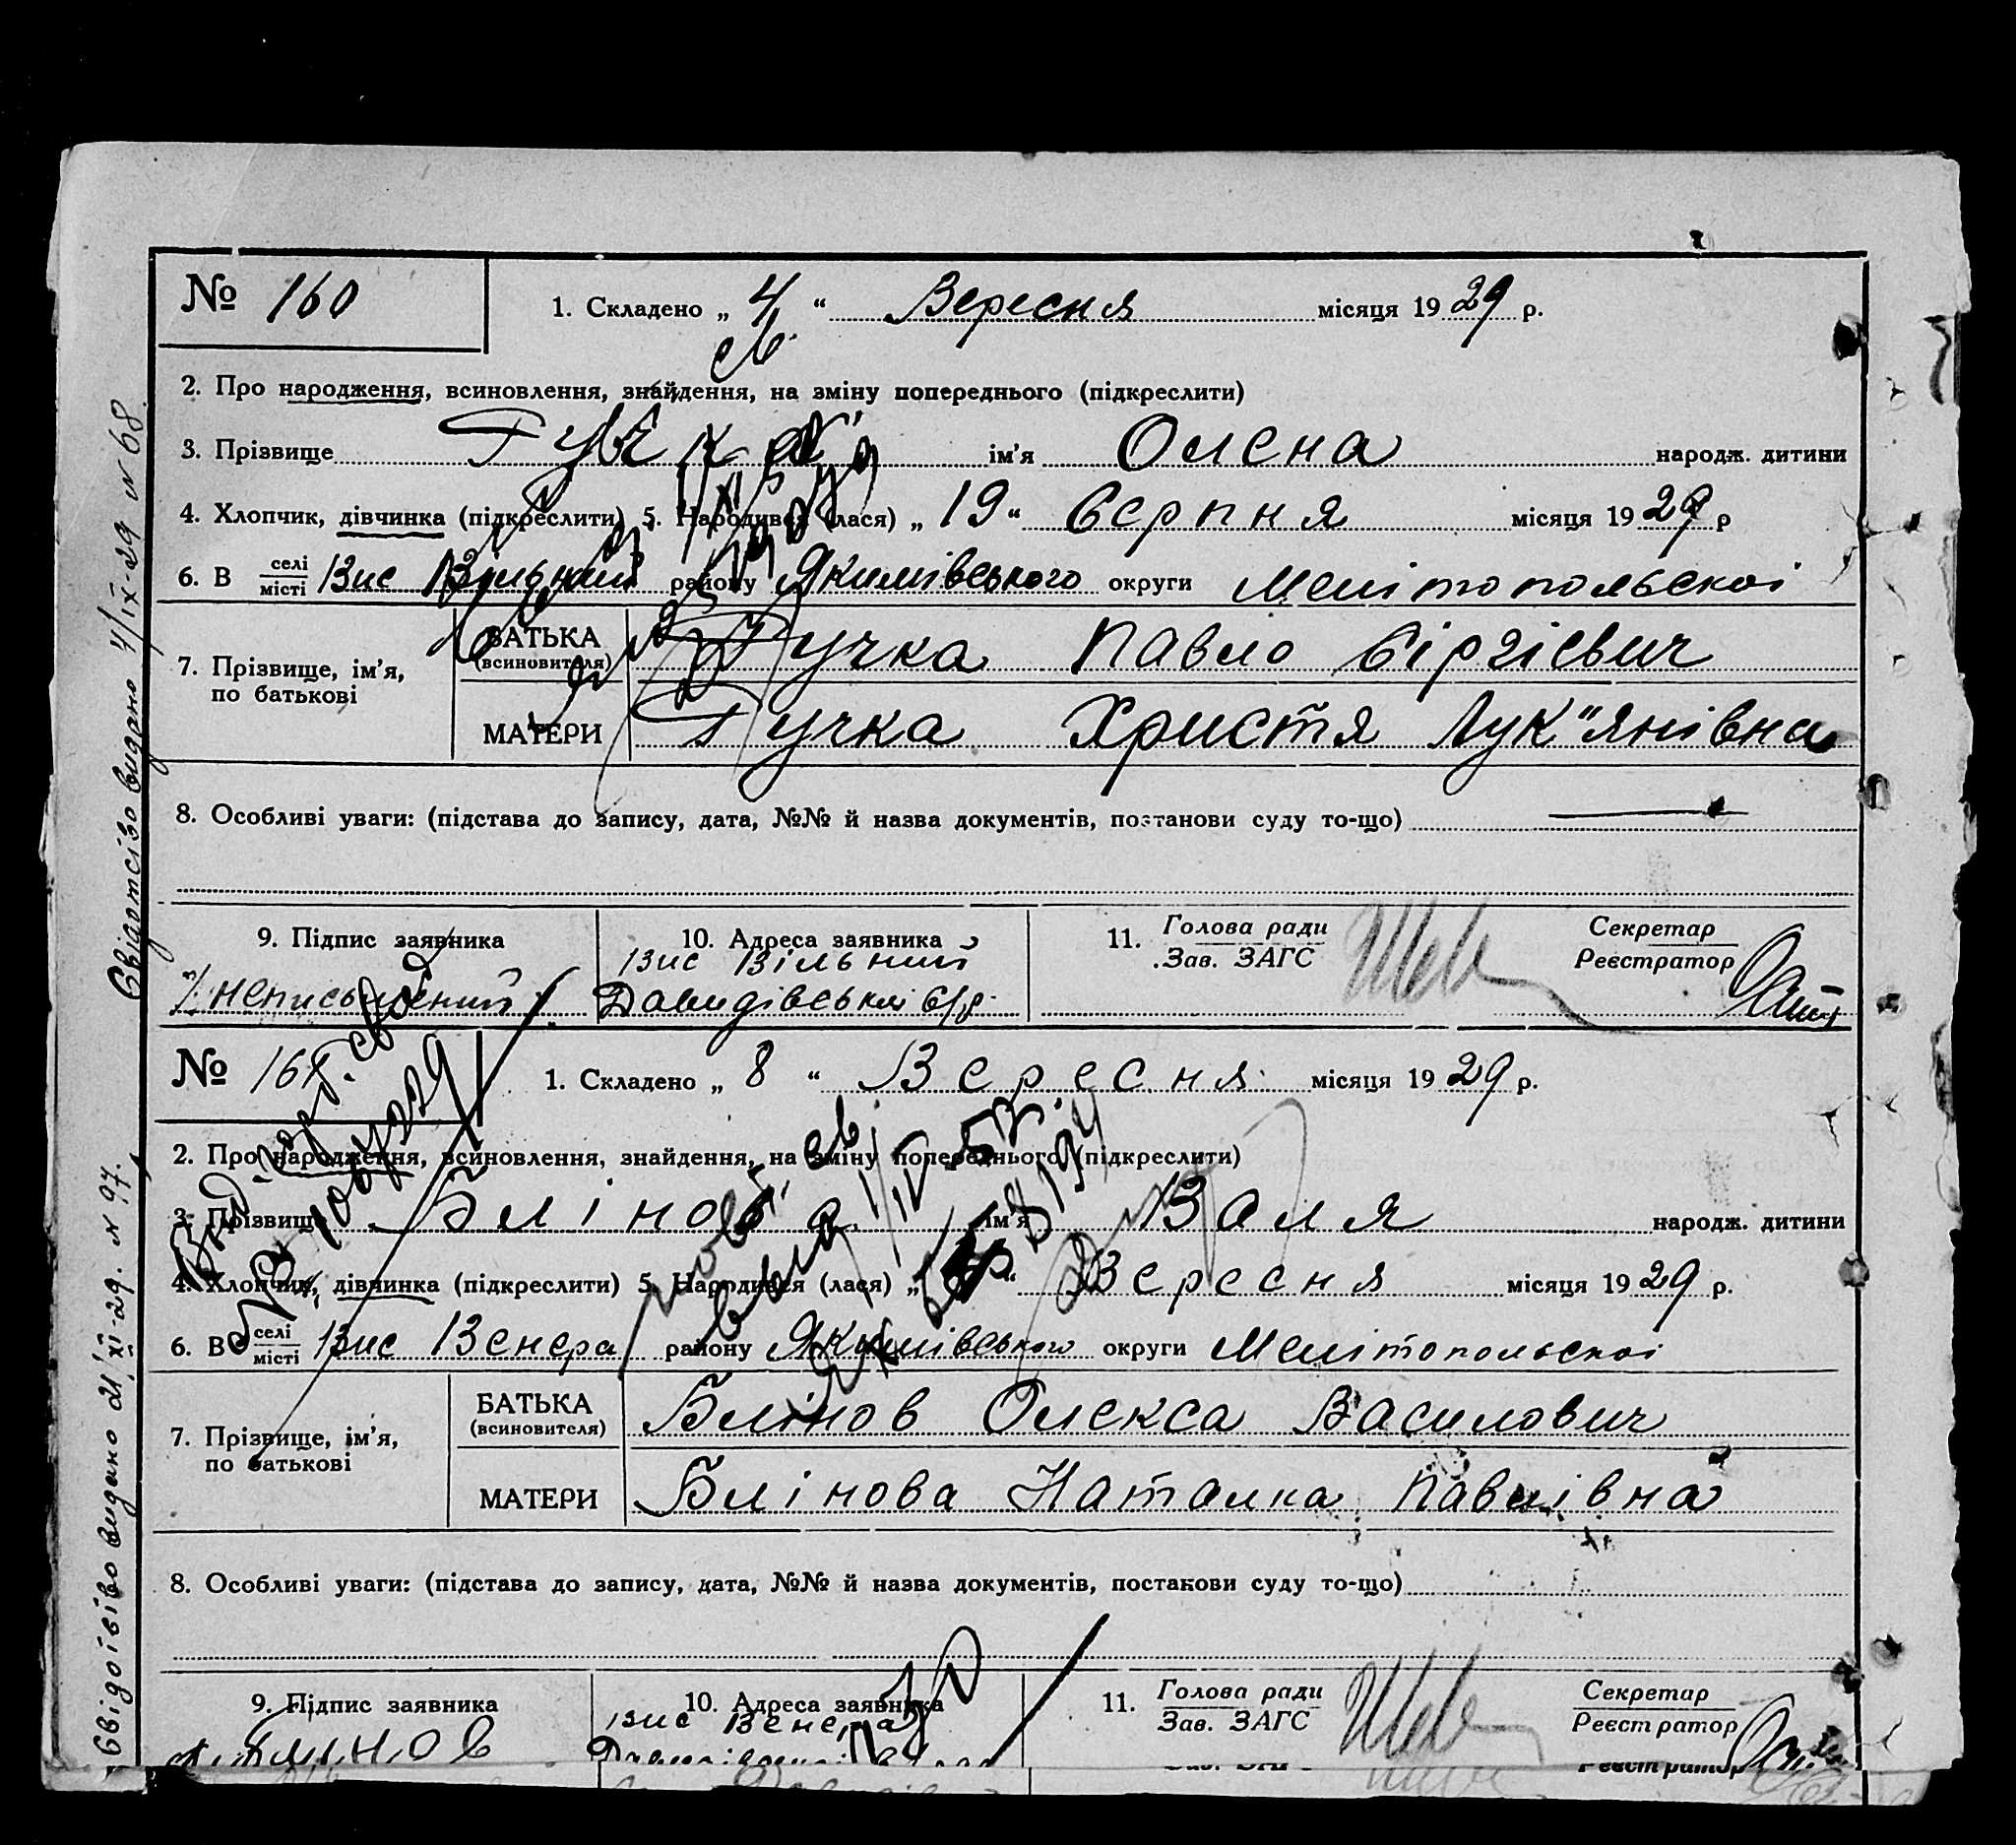 № 160
1. Складено „ 4 “ Вересня місяця 1929 р.
2. Про народження, всиновлення, знайдення, на зміну попереднього (підкреслити)
3. Прізвище Гучка ім'я Олена народж. дитини
4. Хлопчик, дівчинка (підкреслити) 5. Народився (лася) „ 19 “ Серпня місяця 1929 р
6. В селі місті Вис Вільний району Якимівського округи Мелітопольскоі
7. Прізвище, ім'я, по батькові
БАТЬКА (всиновителя) Гучка Павло Сіргієвич
МАТЕРИ Гучка Христя Лук"янівна
8. Особливі уваги: (підстава до запису, дата, №№ й назва документів, постанови суду то-що)
9. Підпис заявника
неписьмений
10. Адреса заявника
Вис Вільний
Давидівськоі с/р.
11. Голова ради
Зав. ЗАГС
Секретар
Реєстратор
Свідотсіво видано 4/IX-29 N 68.
№ 161
1. Складено „ 8 “ Вересня місяця 1929 р.
2. Про народження, всиновлення, знайдення, на зміну попереднього (підкреслити)
3. Прізвище Блінова ім'я Валя народж. дитини
4. Хлопчик, дівчинка (підкреслити) 5. Народився (лася) „ “ Вересня місяця 1929 р.
6. В селі місті Вис Венера району Якимівського округи Мелітопольскоі
7. Прізвище, ім'я, по батькові
БАТЬКА (всиновителя) Блінов Олекса Василович
МАТЕРИ Блінова Наталка Павлівна
8. Особливі уваги: (підстава до запису, дата, №№ й назва документів, постанови суду то-що)
9. Підпис заявника
Блинов
10. Адреса заявника
Вис Венера
11. Голова ради
Зав. ЗАГС
Секретар
Реєстратор
Свідоїсіво видано 21/XI-29. N 97.